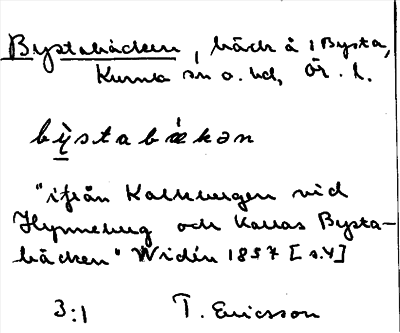 Bystabäcken, bäck å i Bysta,
Kumla sn o. hd, Ör. l.
bỳstabækən
"ifrån Kalkbergen vid
Hynneberg och kallas Bysta-
bäcken" Widén 1857 [s.4]
3:1 T. Ericsson